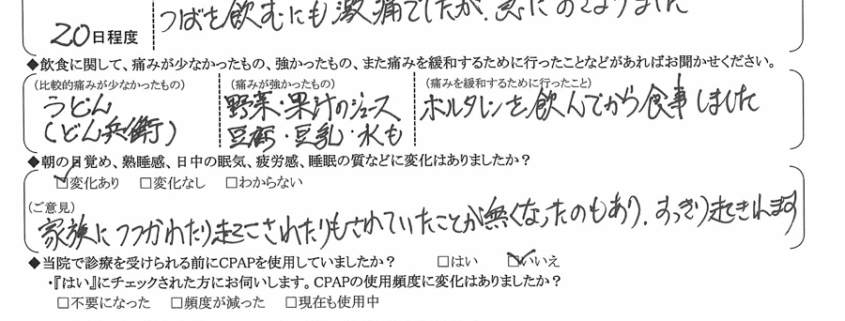 20日程度
つばを飲むにも激痛でしたが、急におさまりました
◆飲食に関して、痛みが少なかったもの、強かったもの、また痛みを緩和するために行ったことなどがあればお聞かせください。
(比較的痛みが少なかったもの) (痛みが強かったもの) (痛みを緩和するために行ったこと)
うどん 野菜・果汁のジュース ボルタレンを飲んでから食事しました
(どん兵衛) 豆腐・豆乳・水も
◆朝の目覚め、熟睡感、日中の眠気、疲労感、睡眠の質などに変化はありましたか?
☑変化あり □変化なし □わからない
(ご意見)
家族につつかれたり起こされたりもされていたことが無くなったのもあり、すっきり起きれます
◆当院で診療を受けられる前にCPAPを使用していましたか? □はい ☑いいえ
・『はい』にチェックされた方にお伺いします。CPAPの使用頻度に変化はありましたか?
□不要になった □頻度が減った □現在も使用中